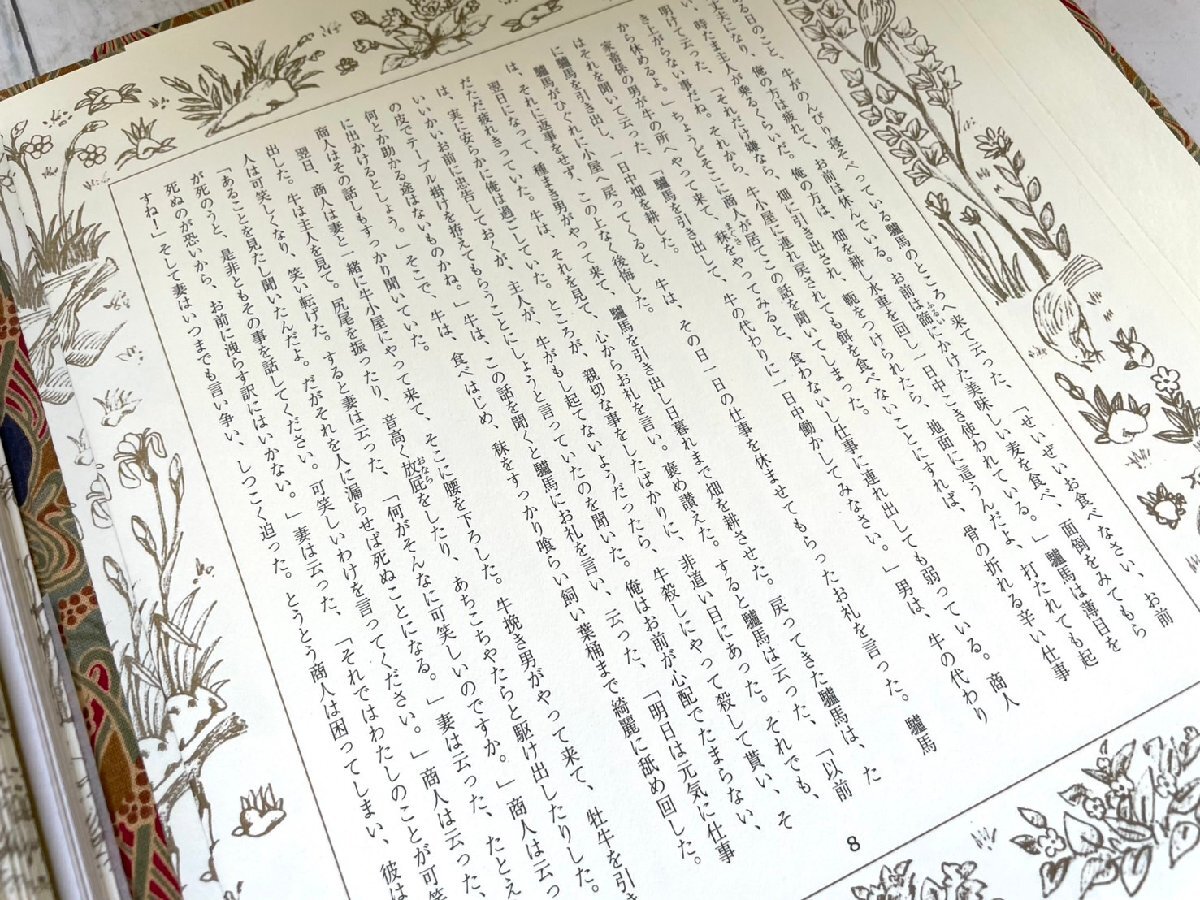 る日のこと、牛がのんびり寝そべっている驢馬のところへ来て云った、「せいぜいお食べなさい、お前
丈夫になり、俺の方は疲れて、お前は休んでいる。お前は篩にかけた美味しい麦を食べ、面倒をみてもら
時たま主人が乗るくらいだ。俺の方は、畑を耕し水車を回し一日中こき使われている。」驢馬は薄目を
明けて云った、「それだけ嫌なら、畑に引き出され、軛をつけられたら、地面に這うんだよ、打たれても起
き上がらない事だね。それから、牛小屋に連れ戻されても餌を食べないことにすれば、骨の折れる辛い仕事
から休める。」ちょうどそこに商人が居てこの話を聞いてしまった。
家畜係の男が牛の所へやって来て、秣をやってみると、食わないし仕事に連れ出しても弱っている。商人
はそれを聞いて云った、「驢馬を引き出して、牛の代わりに一日中働かしてみなさい。」男は、牛の代わり
に驢馬を引き出し、一日中畑を耕した。
驢馬がひぐれに小屋へ戻ってくると、牛は、その日一日の仕事を休ませてもらったお礼を言った。驢馬
は、それに返事をせず、この上なく後悔した。
翌日になって、種まき男がやって来て、驢馬を引き出し日暮れまで畑を耕させた。戻ってきた驢馬は、た
だただ疲れきっていた。牛は、それを見て、心からお礼を言い。褒め讃えた。すると驢馬は云った、「以前
は、実に安らかに俺は過ごしていた。ところが、親切な事をしたばかりに、非道い日にあった。それでも、
いいかいお前に忠告しておくが、主人が、牛がもし起てないようだったら、牛殺しにやって殺して貰い、そ
の皮でテーブル掛けを拵えてもらうことにしようと言っていたのを聞いた。俺はお前が心配でたまらない、
何とか助かる途はないものかね。」牛は、この話を聞くと驢馬にお礼を言い、云った、「明日は元気に仕事
に出かけるとしょう。」そこで、牛は、食べはじめ、秣をすっかり喰らい飼い葉桶まで綺麗に舐め回した。
商人はその話もすっかり聞いていた。
翌日、商人は妻と一緒に牛小屋にやって来て、そこに腰を下ろした。牛挽き男がやって来て、牡牛を引き
出した。牛は主人を見て。尻尾を振ったり、音高く放屁をしたり、あちこちやたらと駆け出したりした。
人は可笑しくなり、笑い転げた。すると妻は云った、「何がそんなに可笑しいのですか。」商人は云っ
「あることを見たし聞いたんだよ。だがそれを人に漏らせば死ぬことになる。」妻は云った、たとえ
が死のうと、是非ともその事を話してください。可笑しいわけを言ってください。」商人は云った、
死ぬのが恐いから、お前に洩らす訳にはいかない。」妻は云った、「それではわたしのことが可笑
すね！」そして妻はいつまでも言い争い、しつこく迫った。とうとう商人は困ってしまい、彼は
8